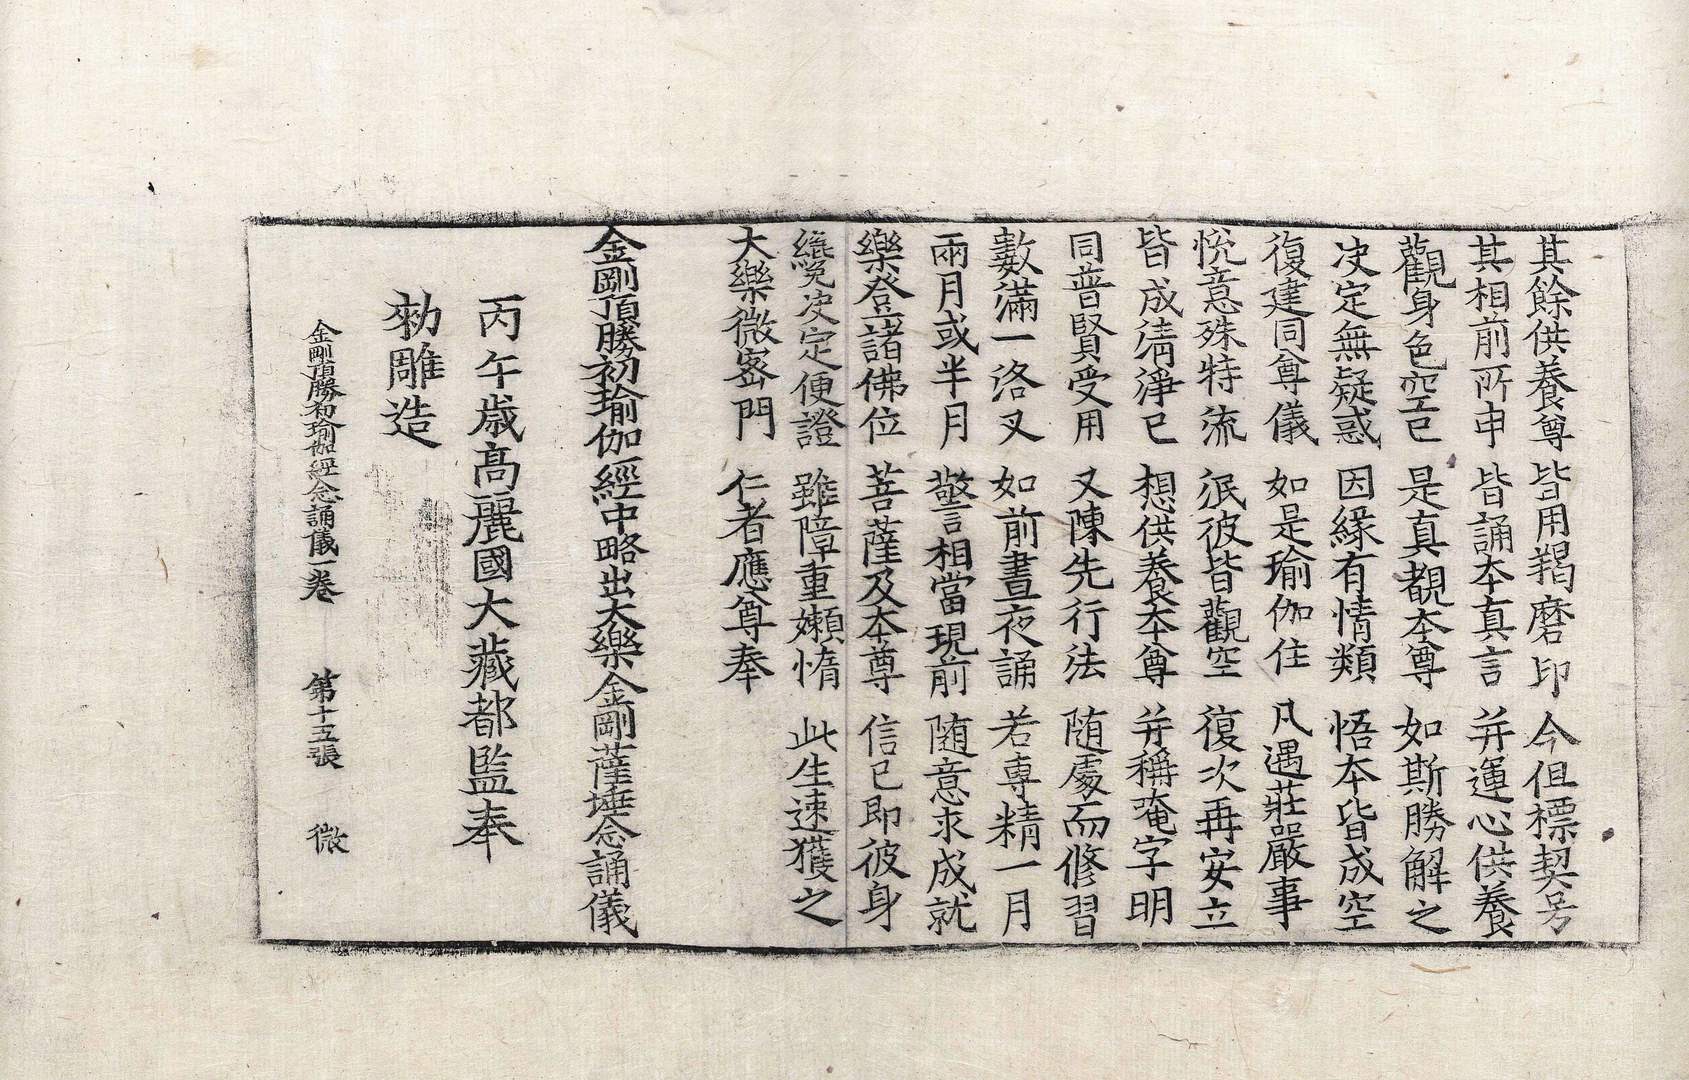 其餘供養尊 皆用羯磨印 今但標契号
其相前所申 皆誦本真言 并運心供養
觀身色空已 是真覩本尊 如斯勝解之
决定無疑惑 因緣有情類 悟本皆成空
復建同尊儀 如是瑜伽住 凡遇莊嚴事
悅意殊特流 泯彼皆觀空 復次再安立
皆成清淨已 想供養本尊 并稱唵字明
同普賢受用 又陳先行法 随處而修習
數滿一洛叉 如前晝夜誦 若專精一月
兩月或半月 警言相當現前 随意求成就
樂登諸佛位 菩薩及本尊 信已即彼身
纔决定便證 雖障重嬾惰 此生速獲之
大樂微密門 仁者應尊奉
金剛頂勝初瑜伽經中略出大樂金剛薩埵念誦儀
丙午歲高麗國大藏都監奉
勑雕造
金剛頂勝初瑜伽經念誦儀一卷 第十五張 微